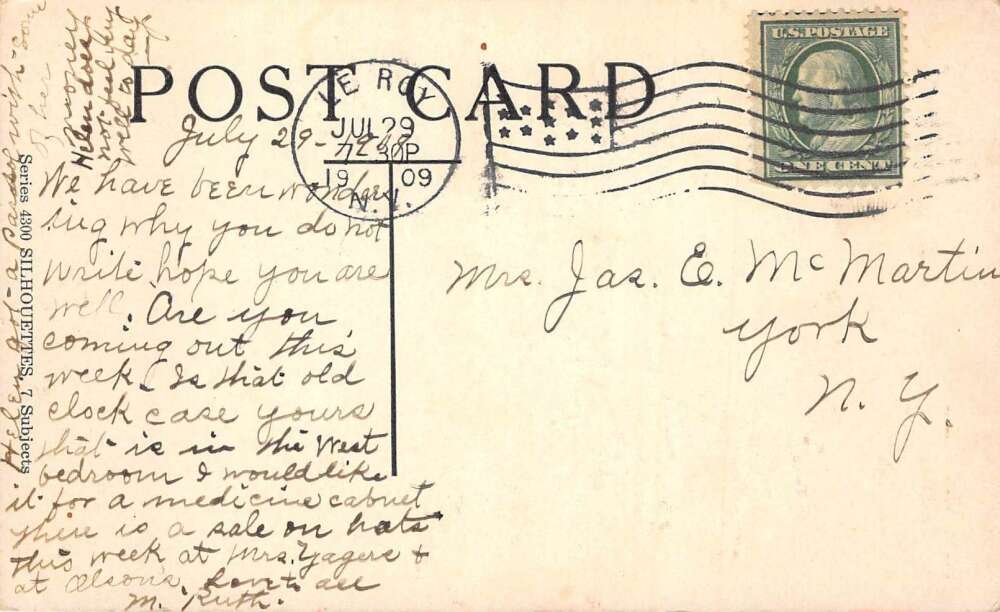 POST CARD
U.S. POSTAGE
ONE CENT
LE ROY
JUL 29
7 30P
19 09
N.Y.
July 29-
We have been wonder
ing why you do not
write, hope you are
well. Are you
coming out this
week. Is that old
clock case yours
that is in the West
bedroom I would like
it for a medicine cabnet
there is a sale on hats
this week at Mrs. Yagers &
at Olsons. Love to all
M. Ruth.
Helen got a parasol with some
of her
money
Helen does
not feel very
well to day
Series 4300 SILHOUETTES 7 Subjects
Mrs. Jas. E. McMartin
York
N. Y.